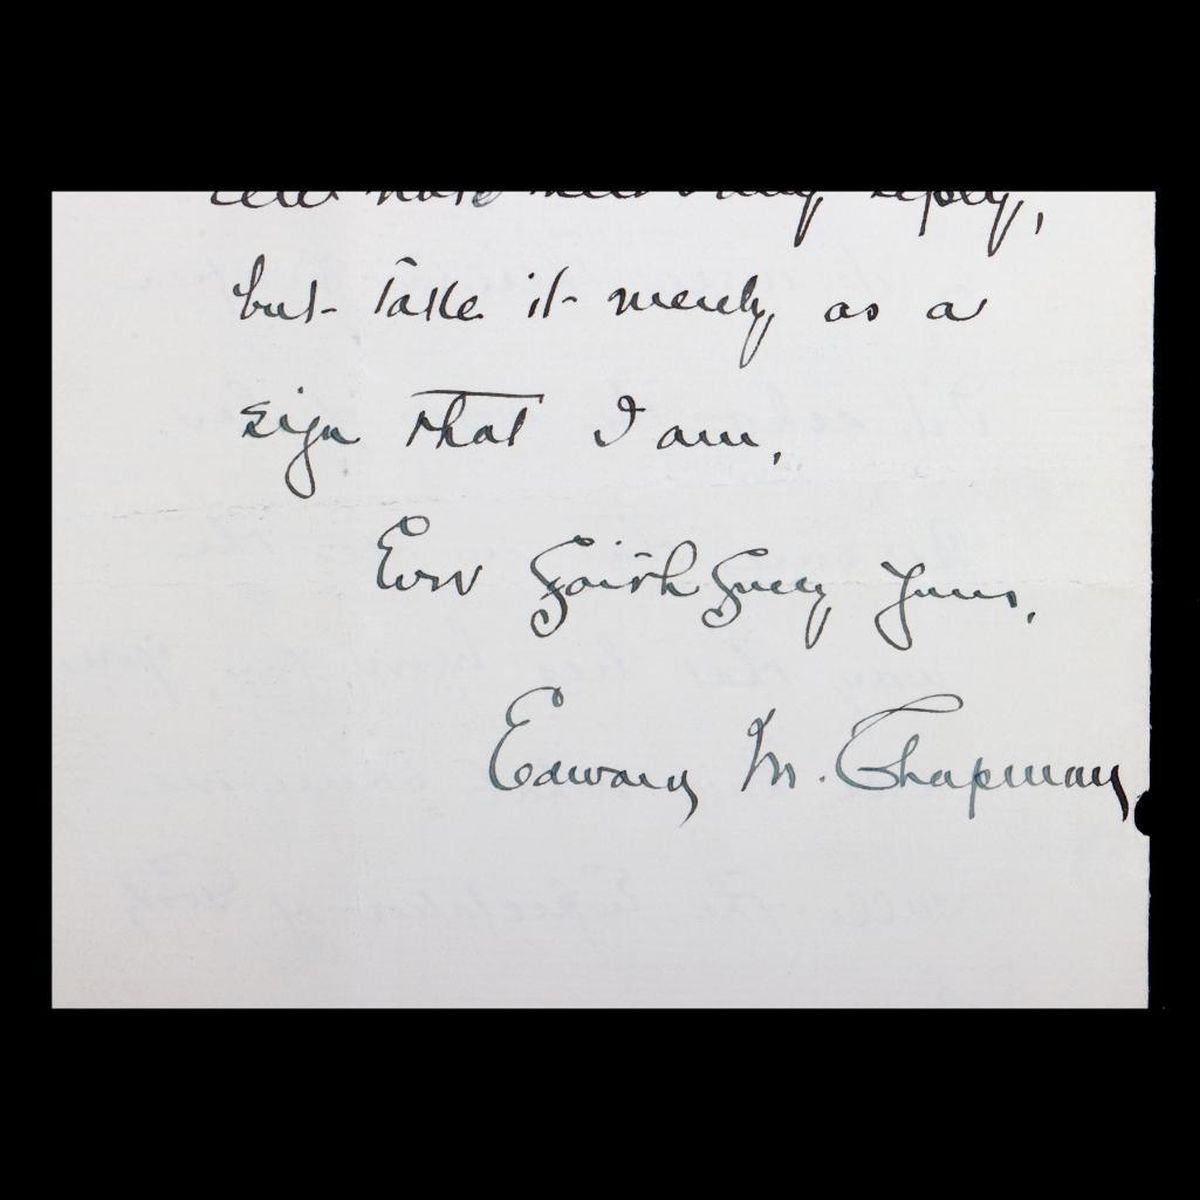 reply,
but take it merely as a
sign that I am,
Ever Faithfully Yours,
Edward M. Chapman